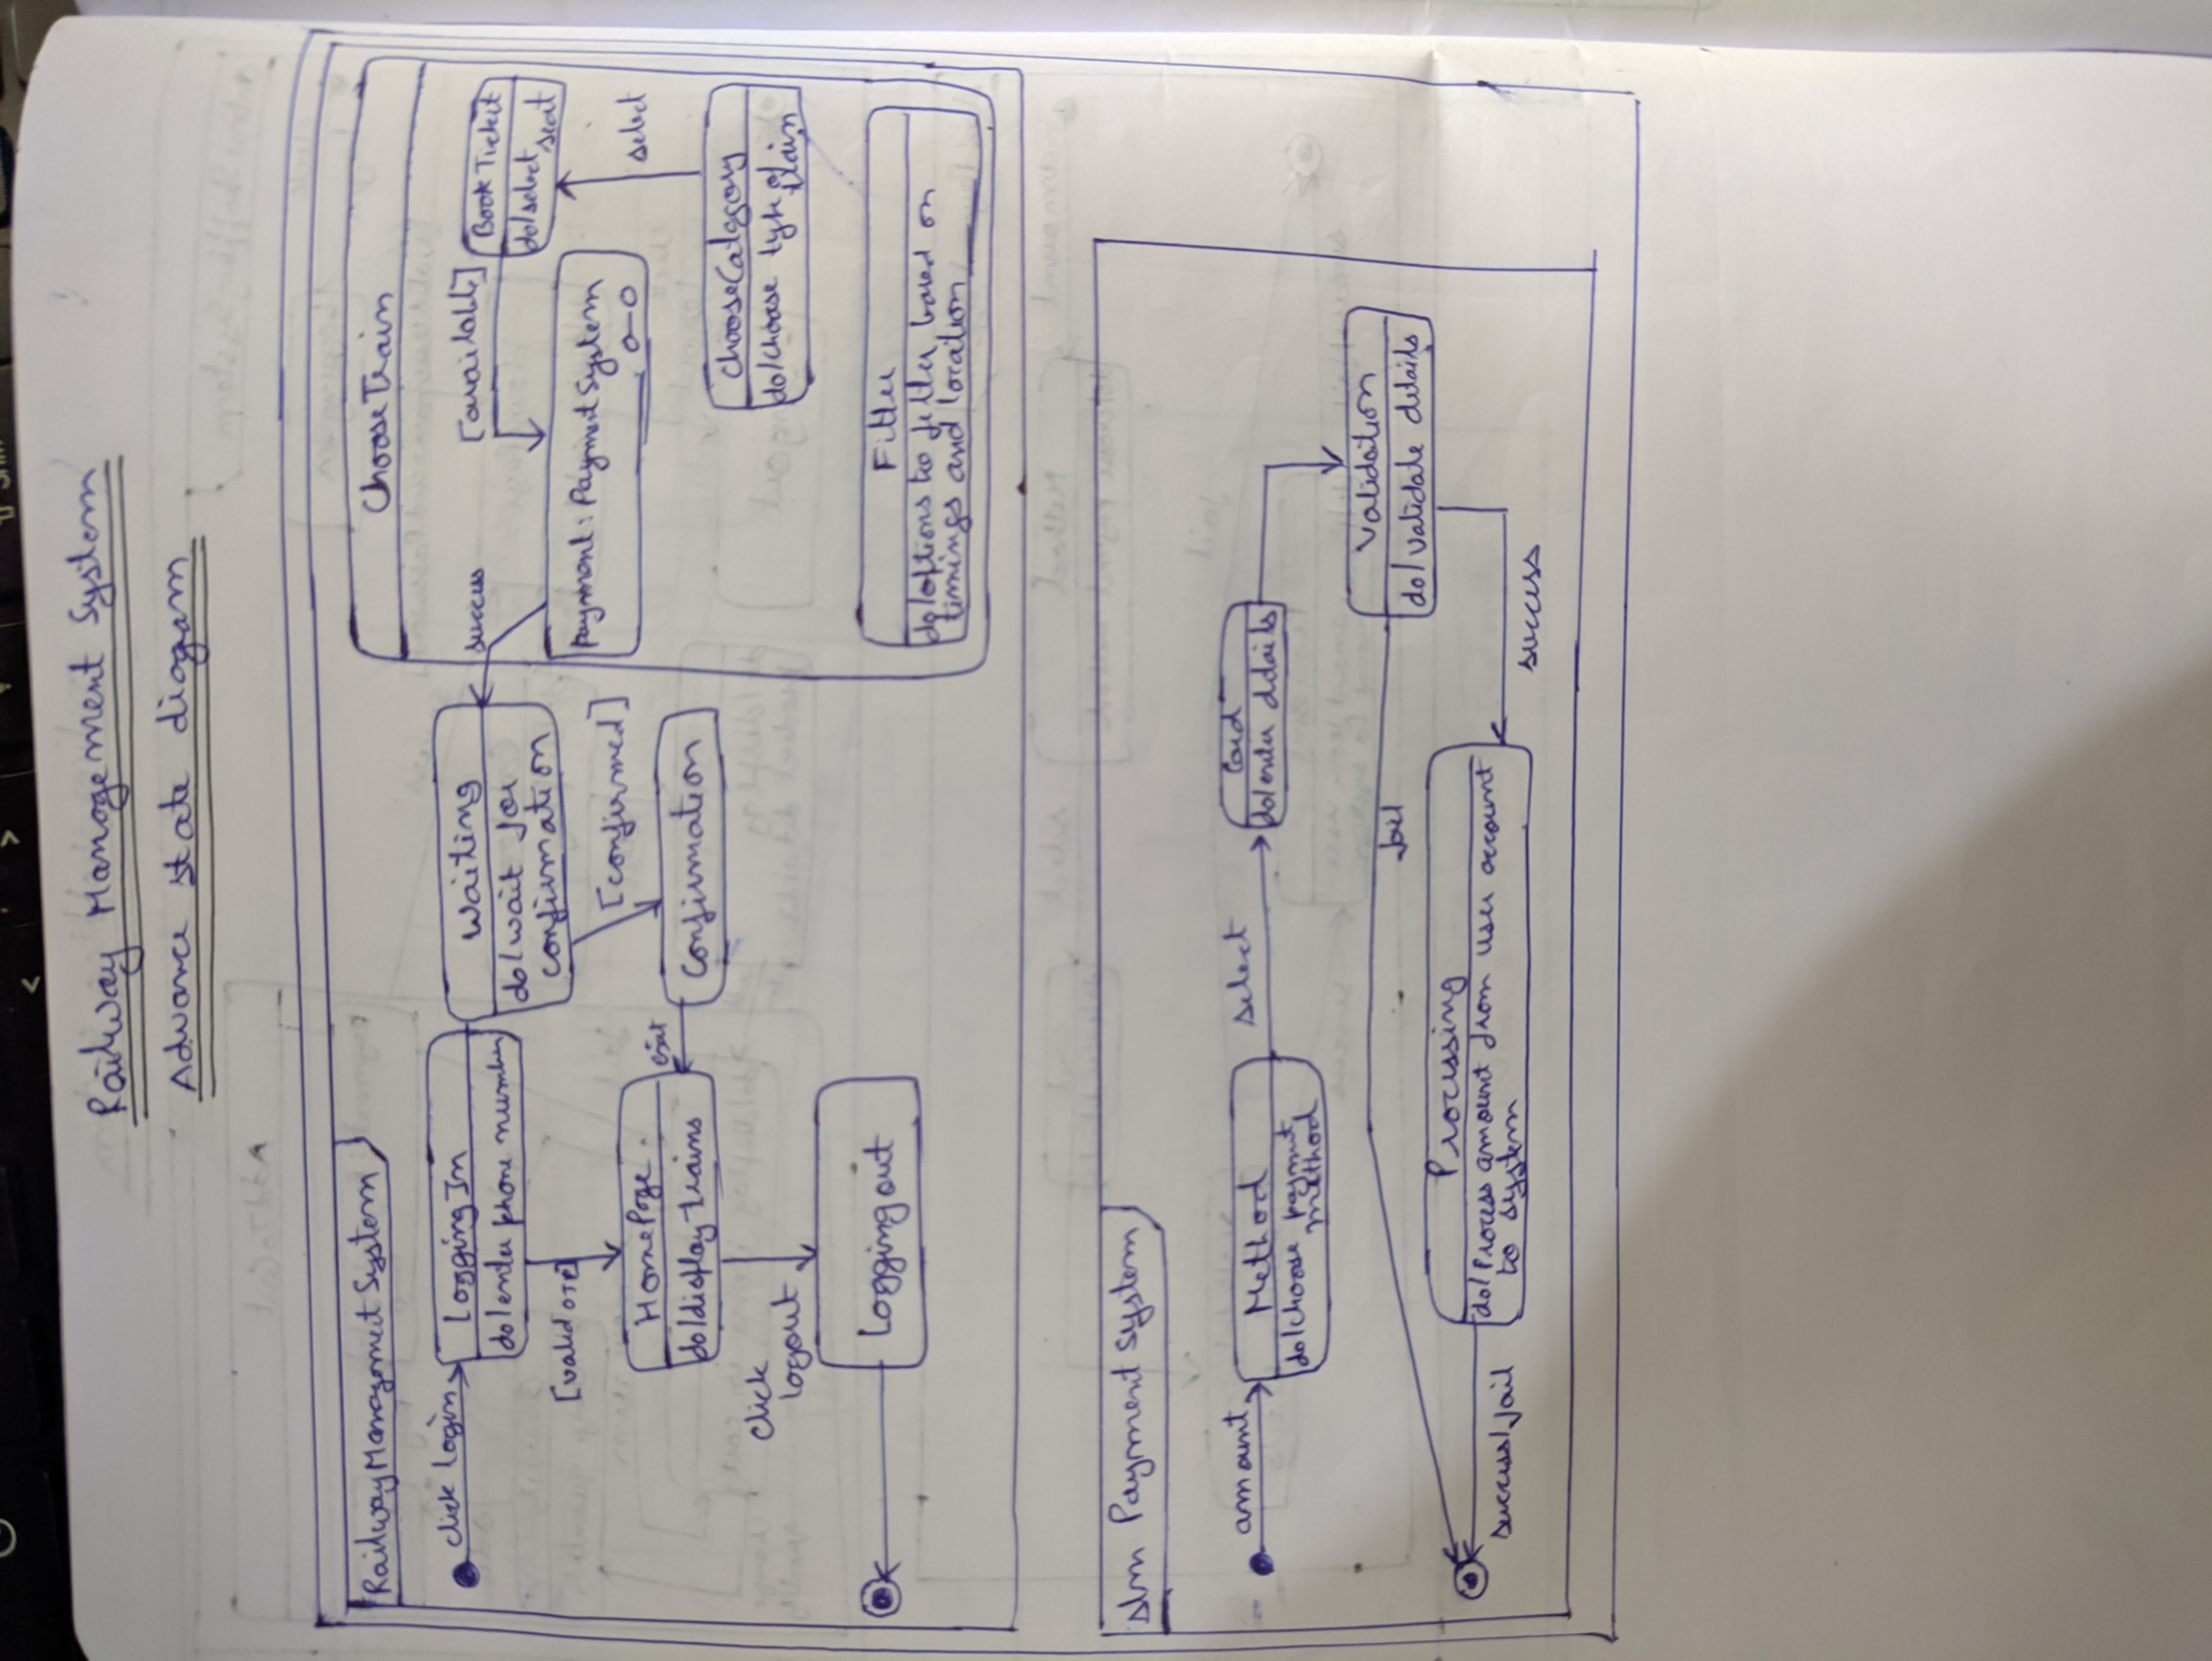 Railway Management System
Advance state diagam
Railway Management System
click login
Logging In
do/enter phone number
[valid OTP]
HomePage
do/display trains
click
logout
Logging out
Waiting
do/wait for
confirmation
[confirmed]
Confirmation
exit
success
Choose Train
[available]
Book Ticket
do/select
seat
payment : Payment System
select
Choose Category
do/choose type of
train
Filter
do/options to filter based on
timings and location
stm Payment System
amount
Method
do/choose paymnt
method
select
Card
do/enter details
Validation
do/validate details
fail
Processing
do/Process amount from user account
to system
success/fail
success